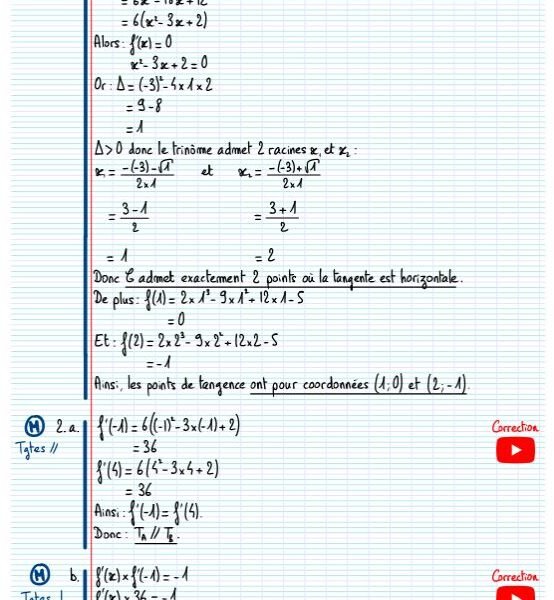 = 6x² - 18x + 12
= 6(x² - 3x + 2)
Alors : f'(x) = 0
x² - 3x + 2 = 0
Or : Δ = (-3)² - 4 x 1 x 2
= 9 - 8
= 1
Δ > 0 donc le trinôme admet 2 racines x₁ et x₂ :
x₁ = (-(-3) - √1)/(2x1) et x₂ = (-(-3) + √1)/(2x1)
= (3 - 1)/2 = (3 + 1)/2
= 1 = 2
Donc C admet exactement 2 points où la tangente est horizontale.
De plus : f(1) = 2 x 1³ - 9 x 1² + 12 x 1 - 5
= 0
Et : f(2) = 2 x 2³ - 9 x 2² + 12 x 2 - 5
= -1
Ainsi, les points de tangence ont pour coordonnées (1 ; 0) et (2 ; -1).
M 2.a. f'(-1) = 6((-1)² - 3 x (-1) + 2) Correction
Tgtes // = 36
f'(4) = 6(4² - 3 x 4 + 2)
= 36
Ainsi : f'(-1) = f'(4).
Donc : T_A // T_B.
M b. f'(x) x f'(-1) = -1 Correction
Tgtes ⊥ f'(x) x 36 = -1